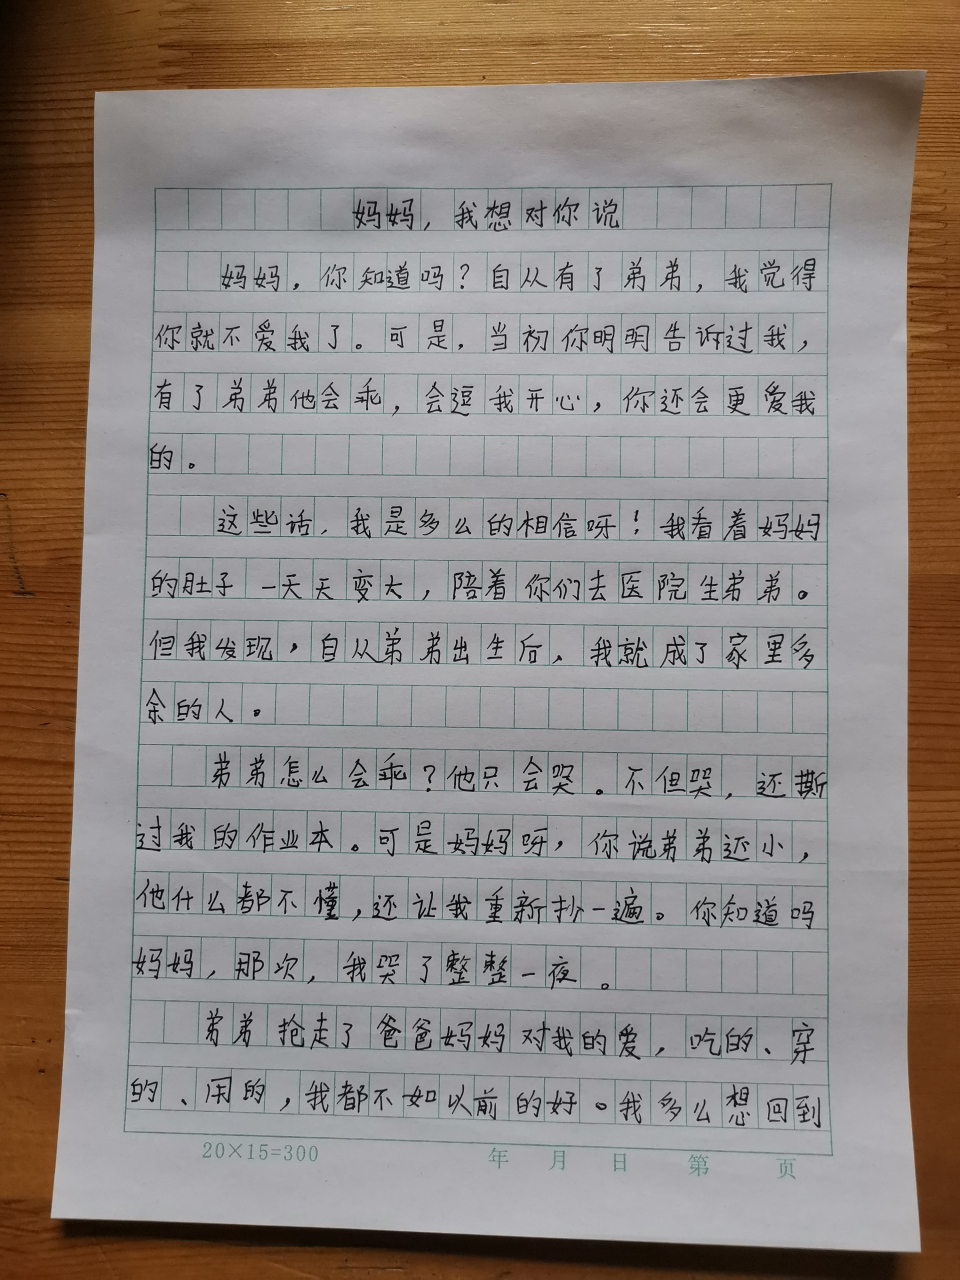 妈妈，我想对你说
妈妈，你知道吗？自从有了弟弟，我觉得
你就不爱我了。可是，当初你明明告诉过我，
有了弟弟他会乖，会逗我开心，你还会更爱我
的。
这些话，我是多么的相信呀！我看着妈妈
的肚子一天天变大，陪着你们去医院生弟弟。
但我发现，自从弟弟出生后，我就成了家里多
余的人。
弟弟怎么会乖？他只会哭。不但哭，还撕
过我的作业本。可是妈妈呀，你说弟弟还小，
他什么都不懂，还让我重新抄一遍。你知道吗
妈妈，那次，我哭了整整一夜。
弟弟抢走了爸爸妈妈对我的爱，吃的、穿
的、用的，我都不如以前的好。我多么想回到
20×15=300 年 月 日 第 页